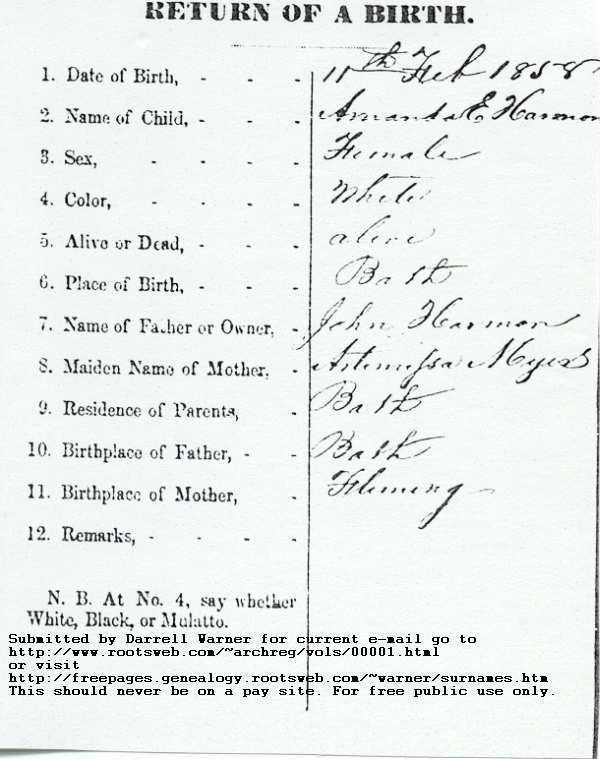 RETURN OF A BIRTH.
1. Date of Birth, - - - 11th Feb 1858
2. Name of Child, - - - Amanda E Harmon
3. Sex, - - - - Female
4. Color, - - - - White
5. Alive or Dead, - - - alive
6. Place of Birth, - - - Bath
7. Name of Father or Owner, - John Harmon
8. Maiden Name of Mother, - Artemissa Myers
9. Residence of Parents, - Bath
10. Birthplace of Father, - - Bath
11. Birthplace of Mother, - Fleming
12. Remarks, - - - -
N. B. At No. 4, say whether
White, Black, or Mulatto.
Submitted by Darrell Warner for current e-mail go to
http://www.rootsweb.com/~archreg/vols/00001.html
or visit
http://freepages.genealogy.rootsweb.com/~warner/surnames.htm
This should never be on a pay site. For free public use only.